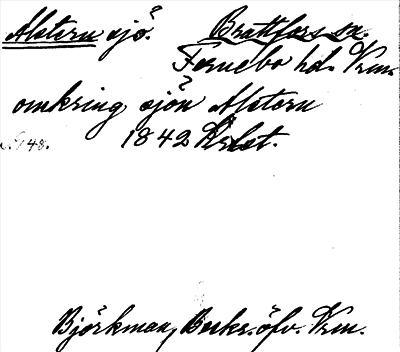 Alstern sjö. Brattfors sn.
Fernebo hd. Vrm.
omkring sjön Alstern
s. 148. 1842
Björkman, Beskr. öfv. Vrm.